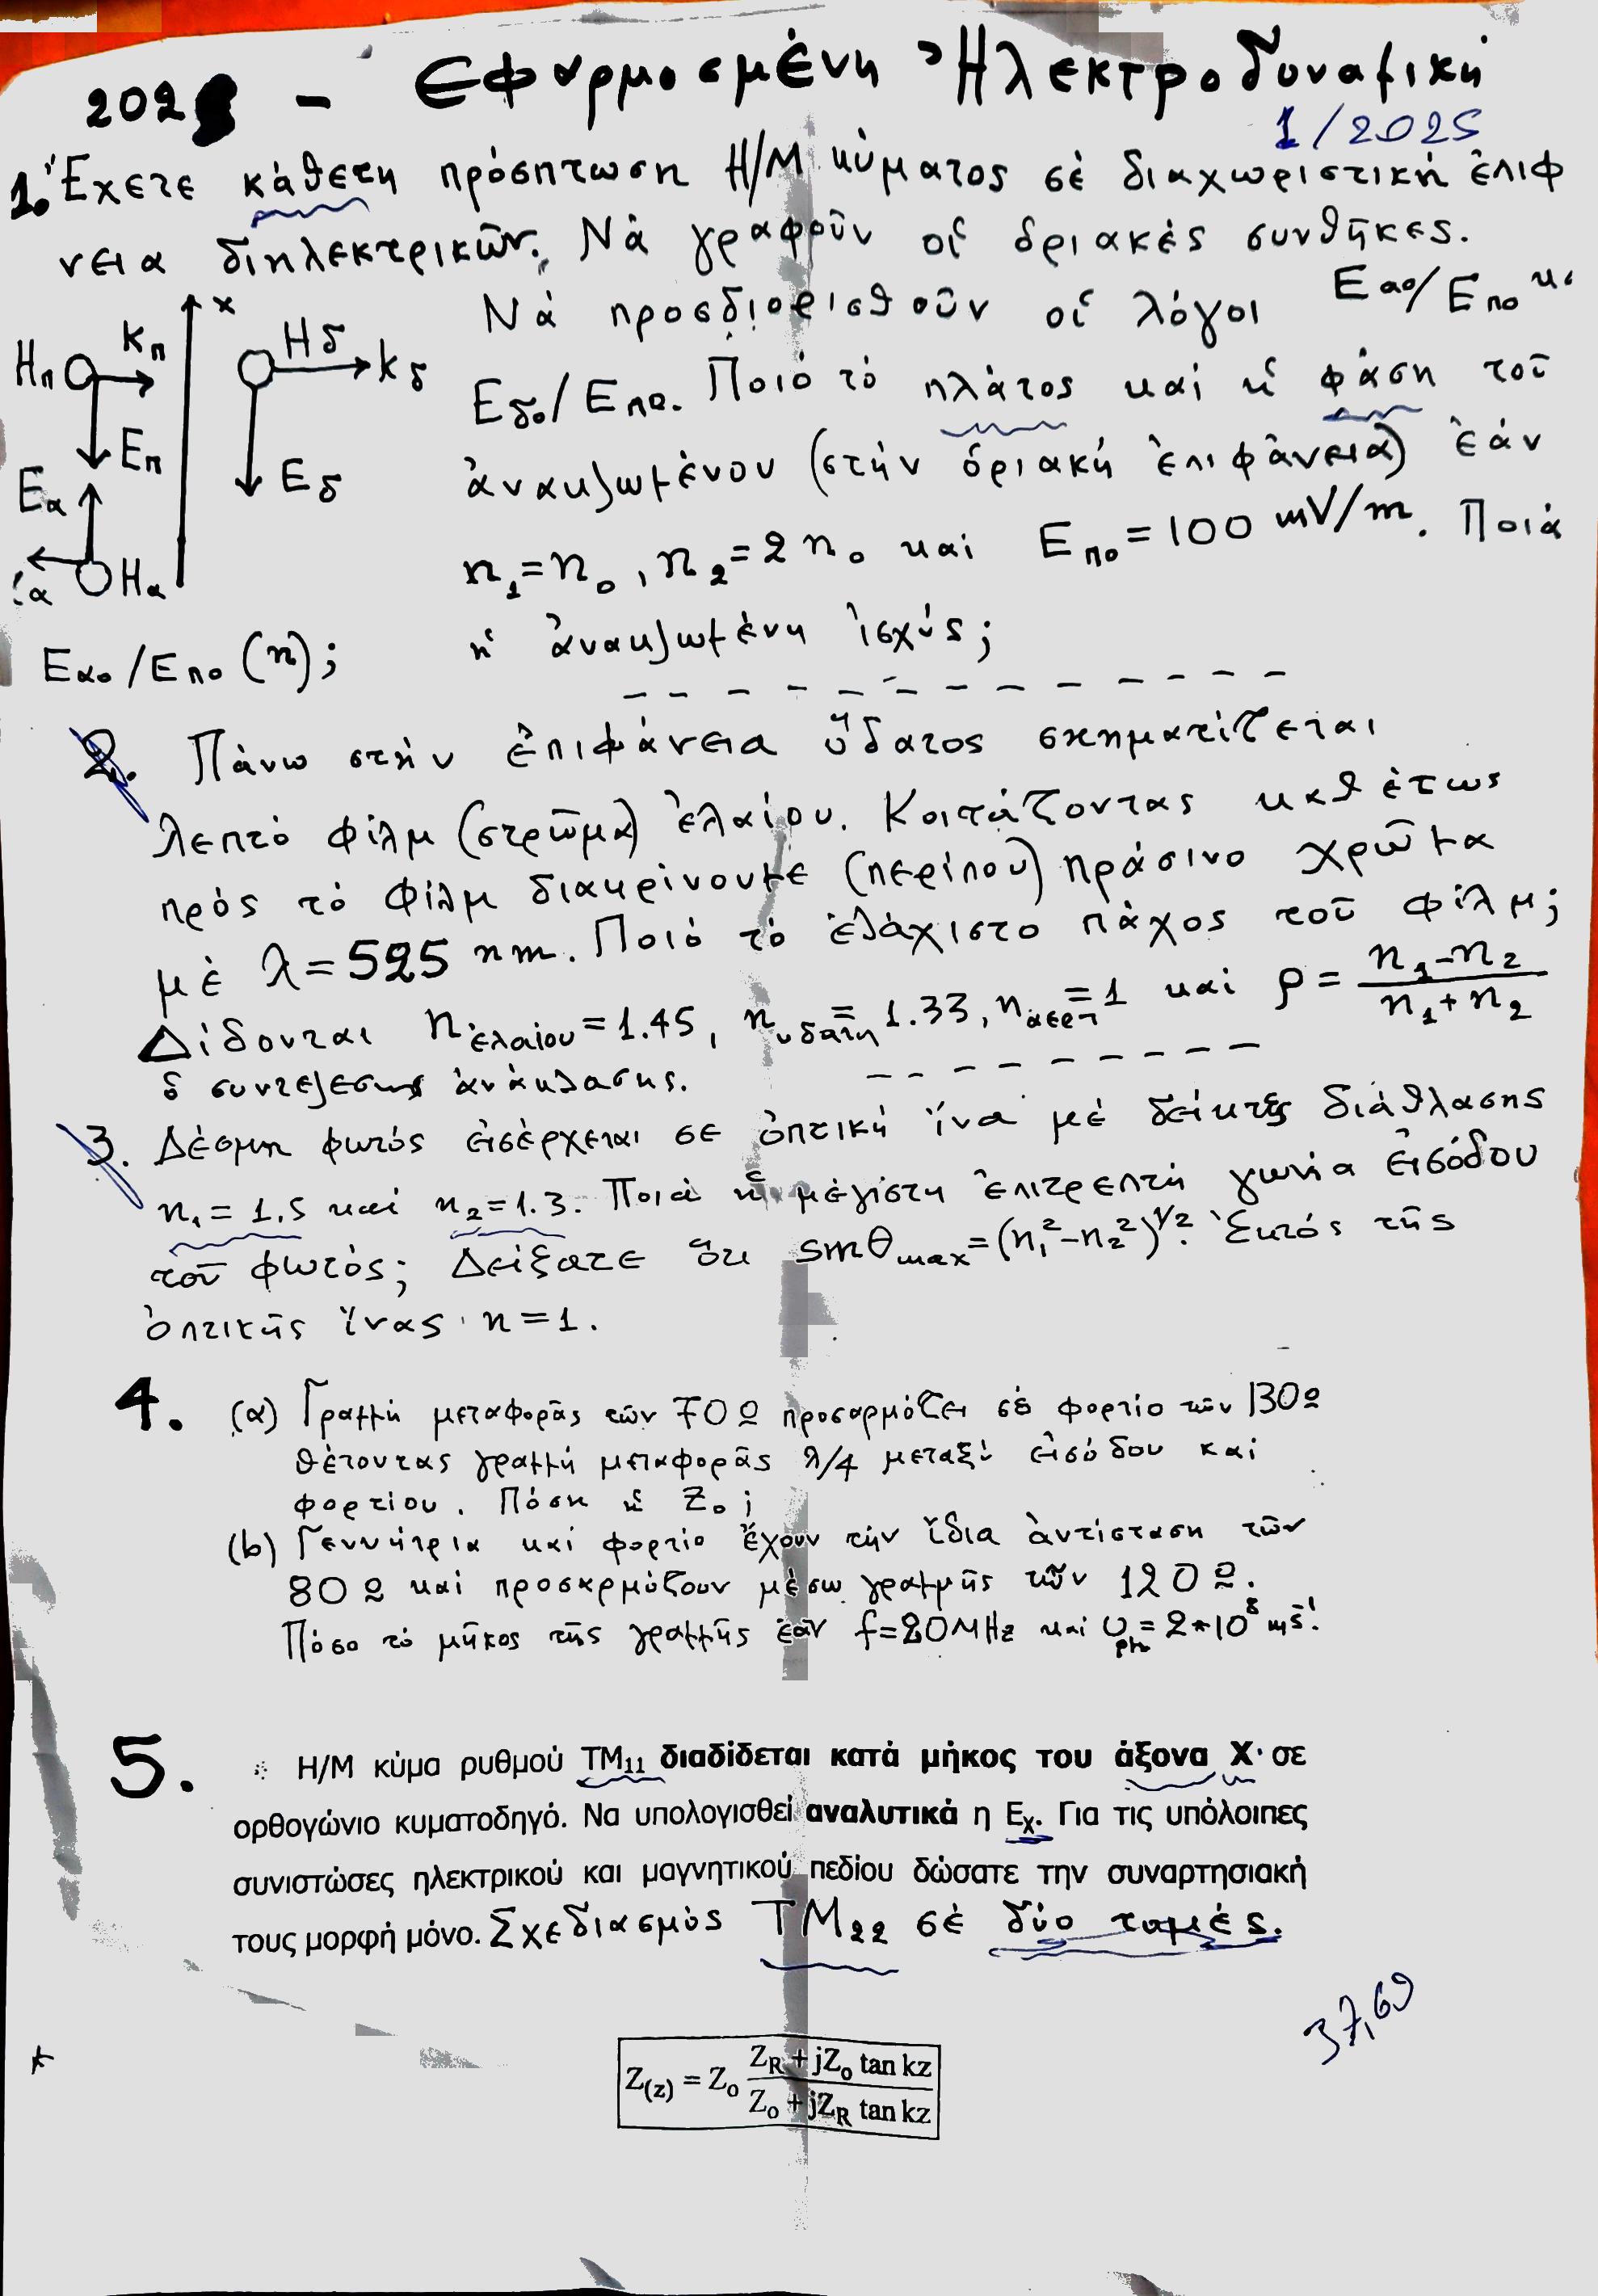 202 - Εφαρμοσμένη Ἠλεκτροδυναμική
1/2025
1. Ἔχετε κάθετη πρόσπτωση Η/Μ κύματος σέ διαχωριστική ἐπιφ
νεια διηλεκτρικῶν. Νά γραφοῦν οἱ ὁριακές συνθῆκες.
Νά προσδιορισθοῦν οἱ λόγοι Εαο/Επο κ
Εδο/Επο. Ποιό τό πλάτος καί ἡ φάση τοῦ
ἀνακλωμένου (στήν ὁριακή ἐπιφάνεια) ἐάν
n₁=n₀, n₂=2n₀ καί Επο=100 mV/m. Ποιά
ἡ ἀνακλωμένη ἰσχύς;
x
Ηπ Κπ Ηδ kδ
Επ Εδ
Εα
α Ηα
Εαο/Επο (n);
2. Πάνω στήν ἐπιφάνεια ὕδατος σχηματίζεται
λεπτό φίλμ (στρῶμα) ἐλαίου. Κοιτάζοντας καθέτως
πρός τό φίλμ διακρίνουμε (περίπου) πράσινο χρῶμα
μέ λ=525 nm. Ποιό τό ἐλάχιστο πάχος τοῦ φίλμ;
Δίδονται nἐλαίου=1.45, nυδατη=1.33, nαερη=1 καί ρ = (n₁-n₂)/(n₁+n₂)
ὁ συντελεστής ἀνάκλασης.
3. Δέσμη φωτός εἰσέρχεται σε ὀπτική ἵνα μέ δείκτες διάθλασης
n₁=1.5 καί n₂=1.3. Ποιά ἡ μέγιστη ἐπιτρεπτή γωνία εἰσόδου
τοῦ φωτός; Δείξατε ὅτι sinθmax=(n₁²-n₂²)^1/2. Ἐκτός τῆς
ὀπτικῆς ἵνας n=1.
4. (α) Γραμμή μεταφορᾶς τῶν 70Ω προσαρμόζει σέ φορτίο τῶν 130Ω
θέτοντας γραμμή μεταφορᾶς λ/4 μεταξύ εἰσόδου καί
φορτίου. Πόση ἡ Ζ₀;
(b) Γεννήτρια καί φορτίο ἔχουν τήν ἴδια ἀντίσταση τῶν
80Ω καί προσαρμόζουν μέσω γραμμῆς τῶν 120Ω.
Πόσο τό μῆκος τῆς γραμμῆς ἐάν f=20MHz καί υph=2*10⁸ ms⁻¹.
5. Η/Μ κύμα ρυθμού ΤΜ₁₁ διαδίδεται κατά μήκος του άξονα Χ σε
ορθογώνιο κυματοδηγό. Να υπολογισθεί αναλυτικά η Εχ. Για τις υπόλοιπες
συνιστώσες ηλεκτρικού και μαγνητικού πεδίου δώσατε την συναρτησιακή
τους μορφή μόνο. Σχεδιασμός ΤΜ₂₂ σέ δύο τομές.
37,69
Z(z) = Z₀ (Z_R + jZ₀ tan kz)/(Z₀ + jZ_R tan kz)